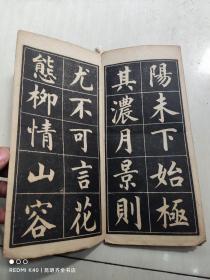 陽未下始極
其濃月景則
尤不可言花
態柳情山容
REDMI K40